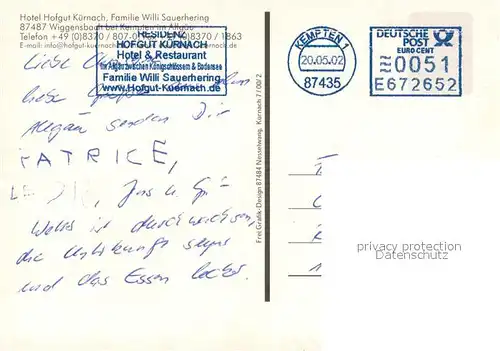 Hotel Hofgut Kürnach, Familie Willi Sauerhering
87487 Wiggensbach bei Kempten im Allgäu
Telefon +49 (0)8370 / 807-0 (0)8370 / 1863
E-mail: info@hofgut-kuernach
RESIDENZ
HOFGUT KÜRNACH
Hotel & Restaurant
im Allgäu zwischen Königsschlössern & Bodensee
Familie Willi Sauerhering
www.Hofgut-Kuernach.de
KEMPTEN 1
20.05.02
87435
DEUTSCHE
POST
EURO CENT
0051
E672652
Liebe
liebe Grüße
Allgäu senden Dir
PATRICE,
Jens u.
ist durchwachsen,
die Unterkunft super
und das Essen lecker.
Frei Grafik-Design 87484 Nesselwang, Kürnach 7/00/2
privacy protection
Datenschutz